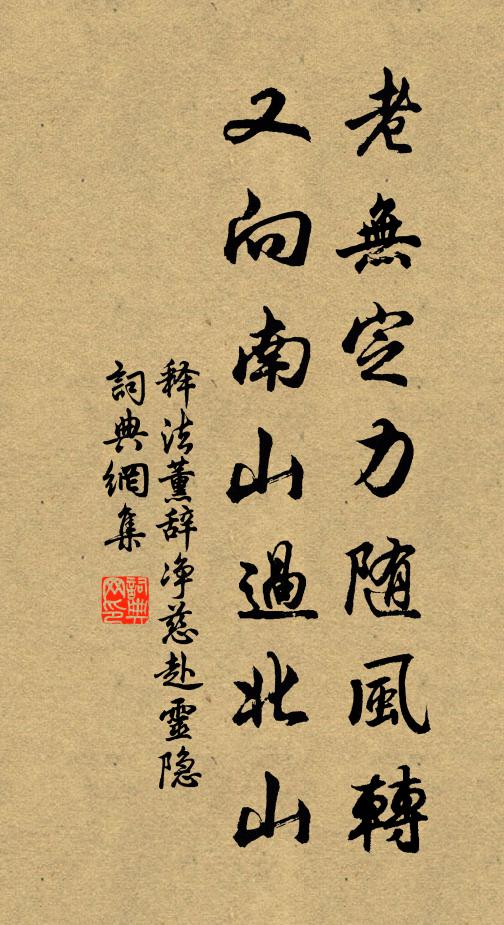 老無定力随風轉
又向南山過北山
释法薰辞净慈赴靈隐
詞典網集
詞典網印